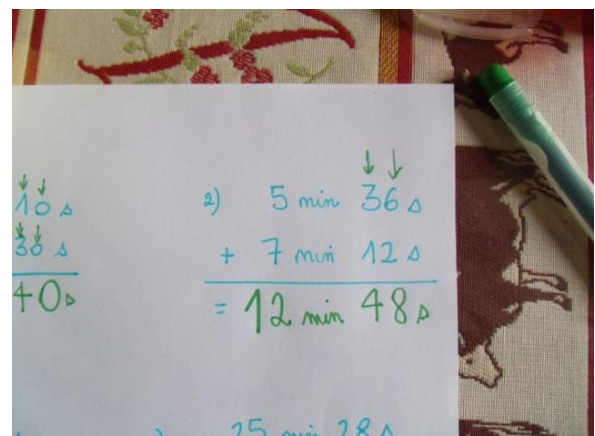 10 s
30 s
40 s
2) 5 min 36 s
+ 7 min 12 s
= 12 min 48 s
25 min 28 s